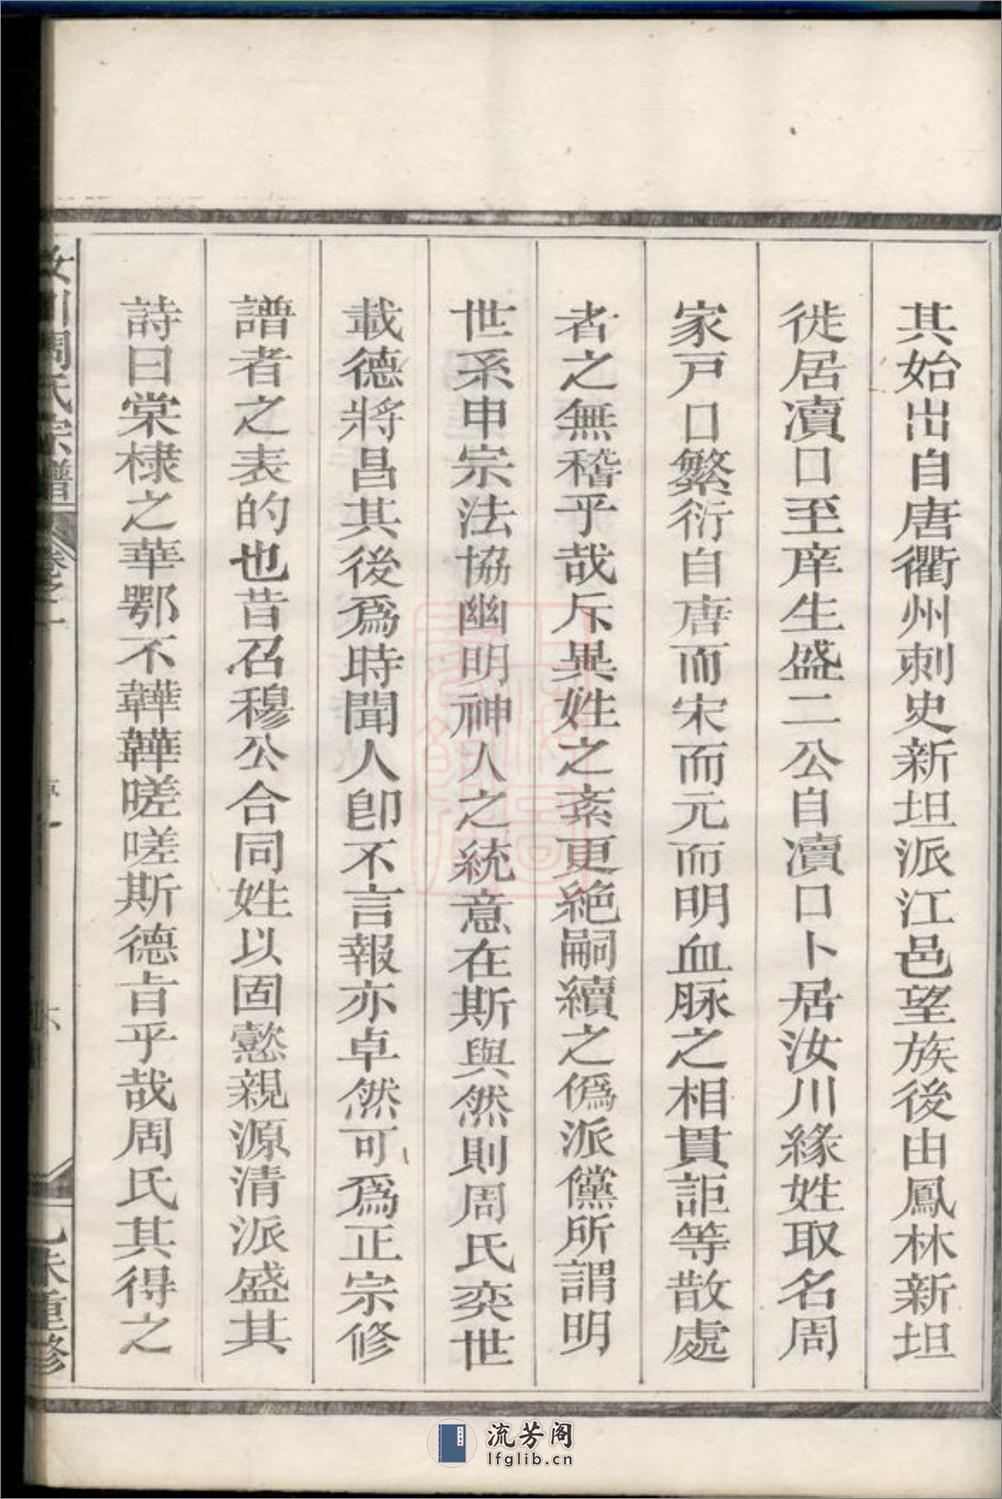 其始出自唐衢州刺史新坦派江邑望族後由鳳林新坦
徙居瀆口至庠生盛二公自瀆口卜居汝川緣姓取名周
家戸口繁衍自唐而宋而元而明血脉之相貫詎等散處
者之無稽乎哉斥異姓之紊更絶嗣續之僞派儻所謂明
世系申宗法協幽明神人之統意在斯與然則周氏奕世
載德將昌其後爲時聞人卽不言報亦卓然可爲正宗修
譜者之表的也昔召穆公合同姓以固懿親源清派盛其
詩曰棠棣之華鄂不韡韡嗟嗟斯德旨乎哉周氏其得之
汝川周氏宗譜 卷之一
乙未重修
流芳阁
lfglib.cn